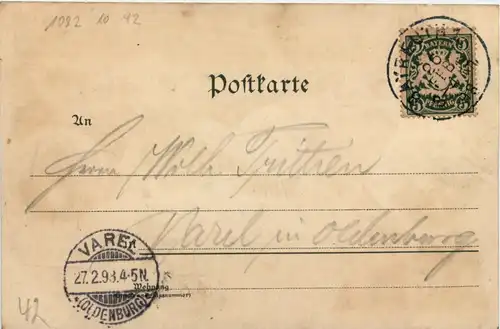 1082 10 42
BAYERN
Postkarte
An
Herrn Wilh.
Varel in Oldenburg
VAREL
27.2.98.4-5N.
(OLDENBURG)
Wohnung
42